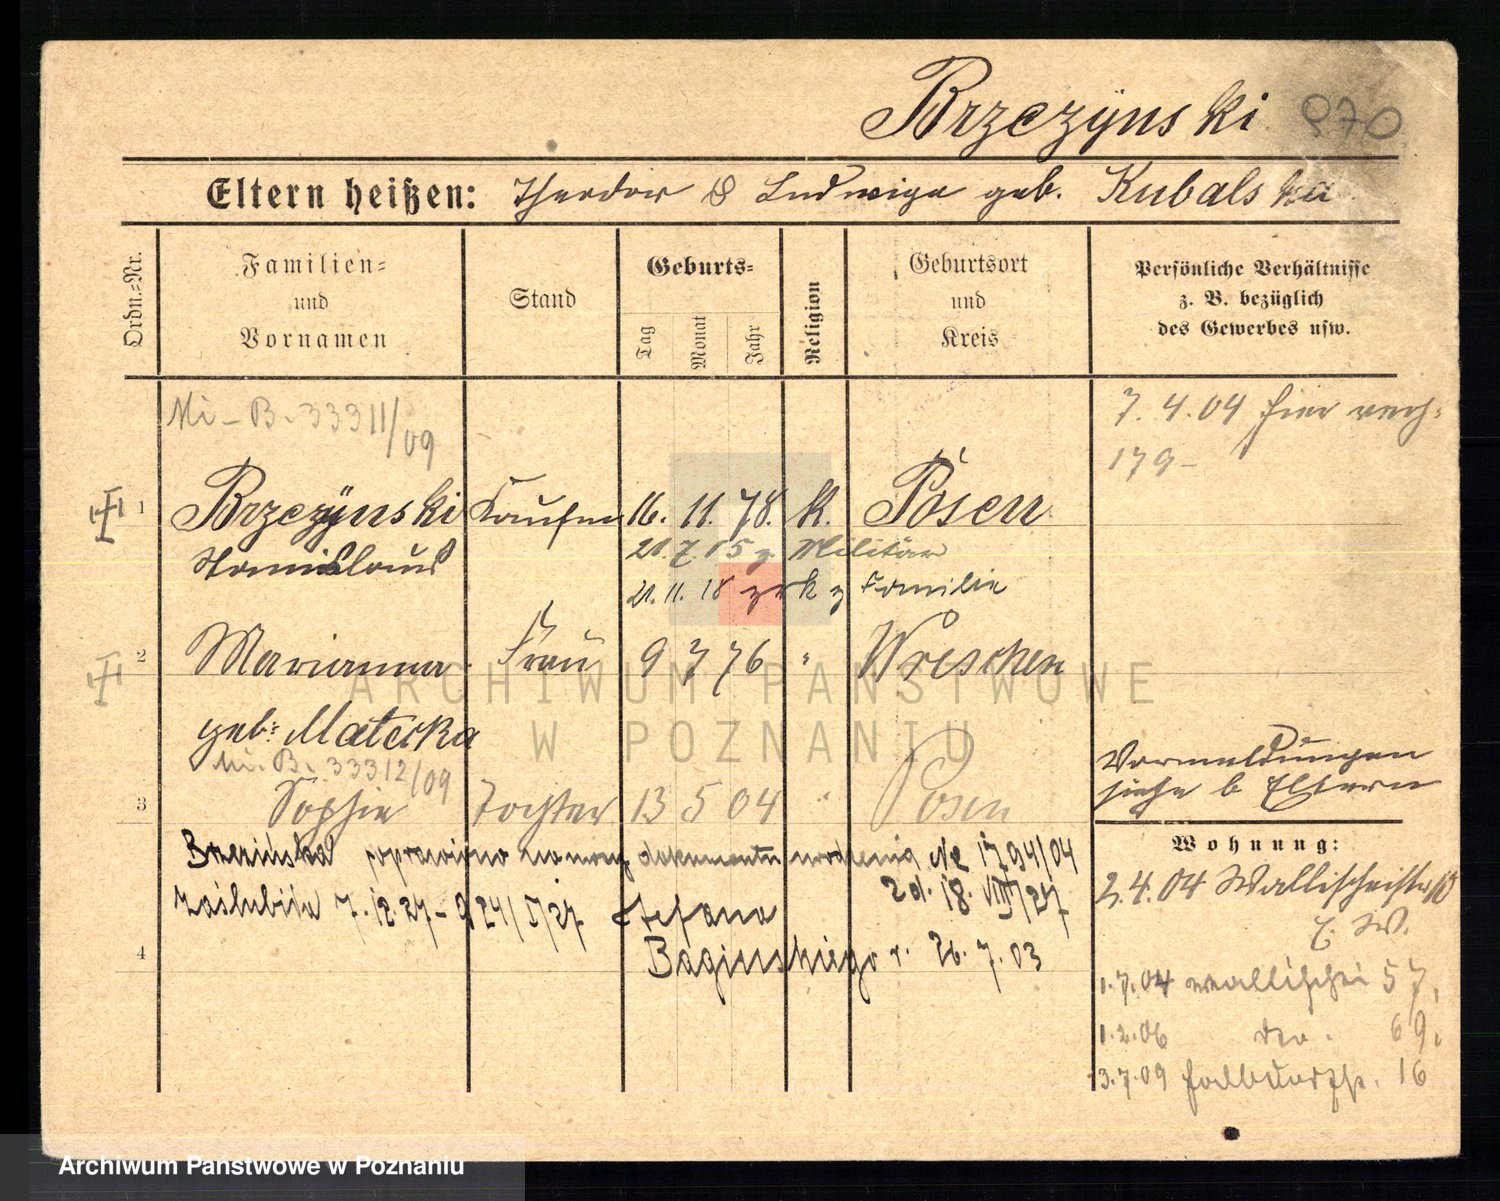 Brzezÿnski 970
Eltern heißen: Theodor & Ludwiga geb. Kubalska
Ordn.-Nr.
Familien-
und
Vornamen
Stand
Geburts-
Tag
Monat
Jahr
Religion
Geburtsort
und
Kreis
Persönliche Verhältnisse
z. B. bezüglich
des Gewerbes usw.
Mi-B. 33311/09
7.4.04 hier verh.
179-
1 Brzezÿnski Kaufm 16. 11. 78. K. Posen
Stanislaus
21.7.15 z Militär
21.11.18 zrk z Familie
2 Marianna Frau 9 7 76 " Wreschen
geb: Matecka
Mi-B. 33312/09
3 Sophie Tochter 13 5 04 " Posen
Vormeldungen
siehe b Eltern
Brzezińska poprawiono na mocy dokumentu urodzenia № 1794/04
zd. 18. VIII/27
Zaślubiła 7.12.27 - 924/V/27 Stefana
4 Baginskiego r. 26.7.03
Wohnung:
2.4.04 Wallischeistr
E. W.
1.7.04 Wallischei 57,
1.2.06 dto. 69.
3.7.09 16
ARCHIWUM PAŃSTWOWE
W POZNANIU
Archiwum Państwowe w Poznaniu